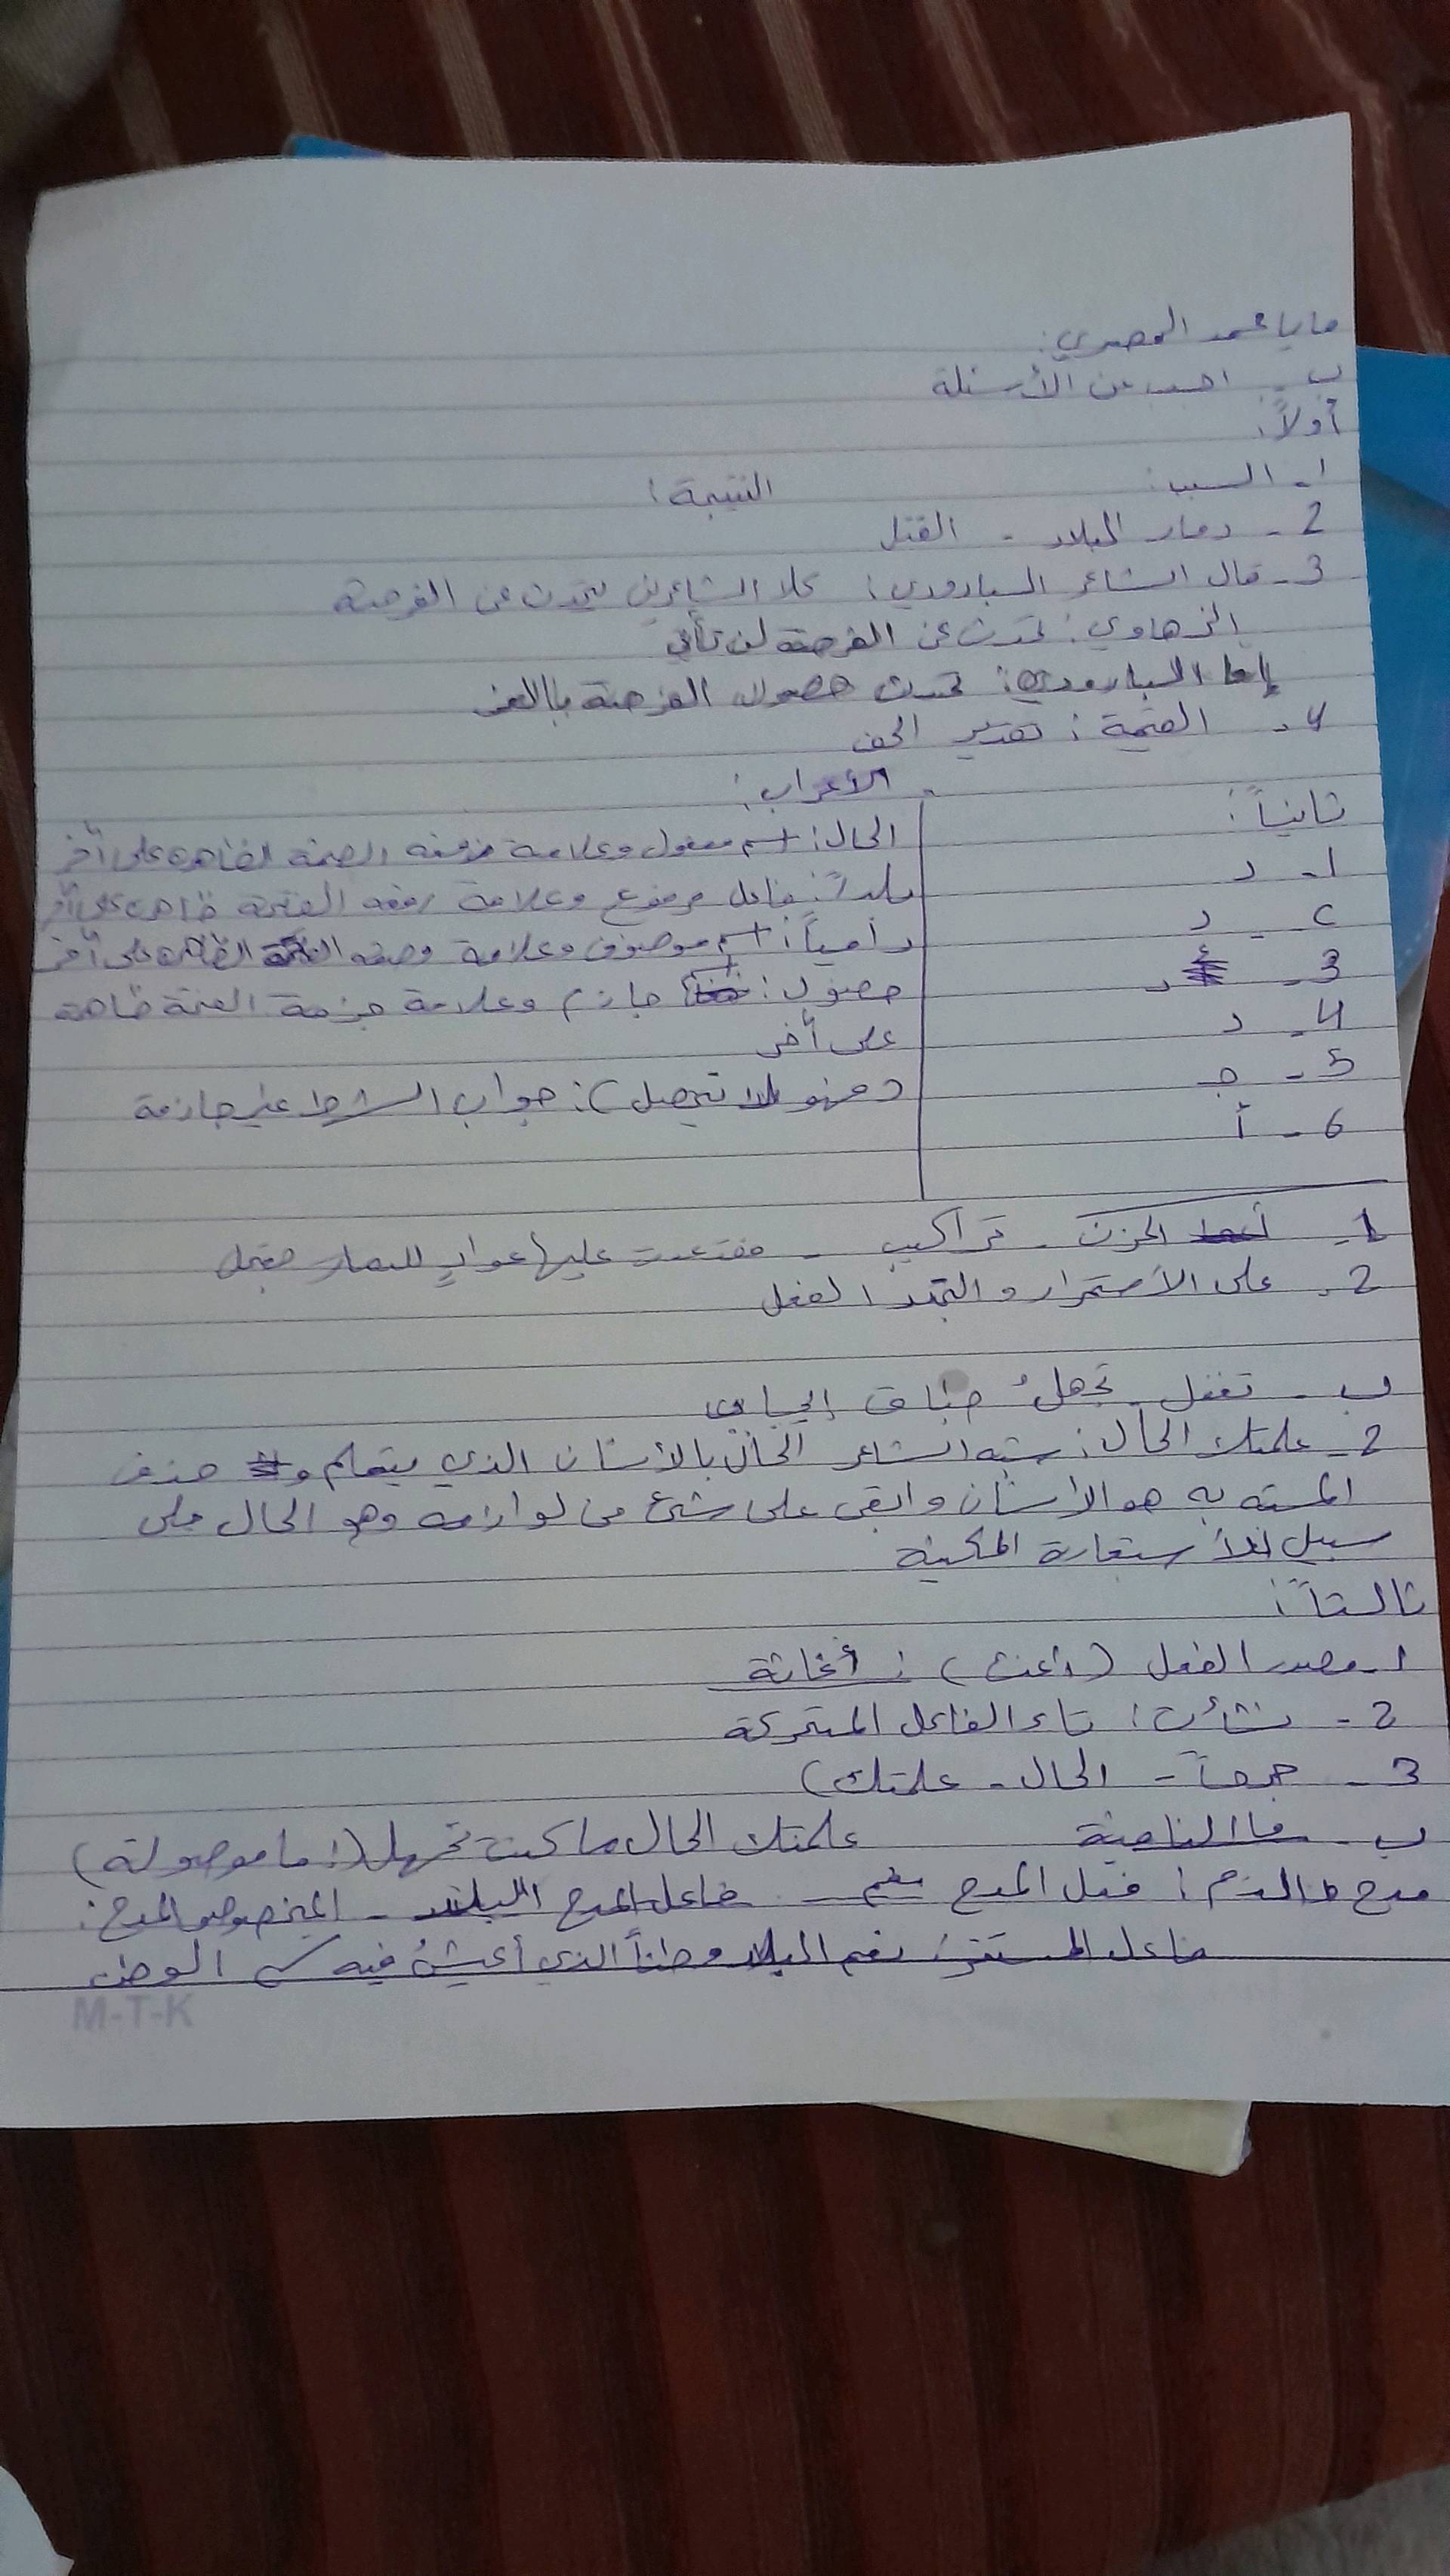 مايا محمد المصري:
ب - اجب عن الأسئلة
أولاً:
1- السبب: النتيجة:
2- دمار البلاد - القتل
3- قال الشاعر البارودي: كلا الشاعرين تحدث عن الفرصة
الزهاوي: تحدث عن الفرصة لن تأتي
إما البارودي: تحدث حصول الفرصة باالعز
4- القيمة: تقدير الحق
ثانياً:
1- د
2- د
3- د
4- د
5- جـ
6- أ
الأعراب:
الحال: اسم مفعول وعلامة رفعه الضمة الظاهرة على أخر
بلداً: فاعل مرفوع وعلامة رفعه الفتحة ظاهرة على أخر
دامياً: اسم موصوف وعلامة وصفه الظاهرة على أخر
حصول: اسم جازم وعلامة جزمة الفتحة ظاهرة
على أخر
(فهو لا تحصل): جواب الشرط غير جازمة
1- الحزن - تراكيب - فقد عدت عليها عوادٍ للدمار فعجل
2- على الأستمرار والتجدد الفعل
ب - تغفل - تجهلُ طباق إيجابي
2- علمتك الحال: شبه الشاعر الحال بالأنسان الذي يتعلم و حذف
المشبه به هو الانسان وابقى على شيئ من لوازمه وهو الحال على
سبيل الأستعارة المكنية
ثالثاً:
1- مصدر الفعل (أغث): أغاثة
2- نشأت: تاء الفاعل المتحركة
3- - الحال - علمتك)
ب - ما النافية علمتك الحال ما كنت تجهل (: ما موصولة)
مدح الذم: فعل المدح نعم - فاعل المدح البلاد - المخصوص المدح:
فاعل المستتر: نعم البلاد وطناً الذي أعيشُ فيه الوطن
M-T-K